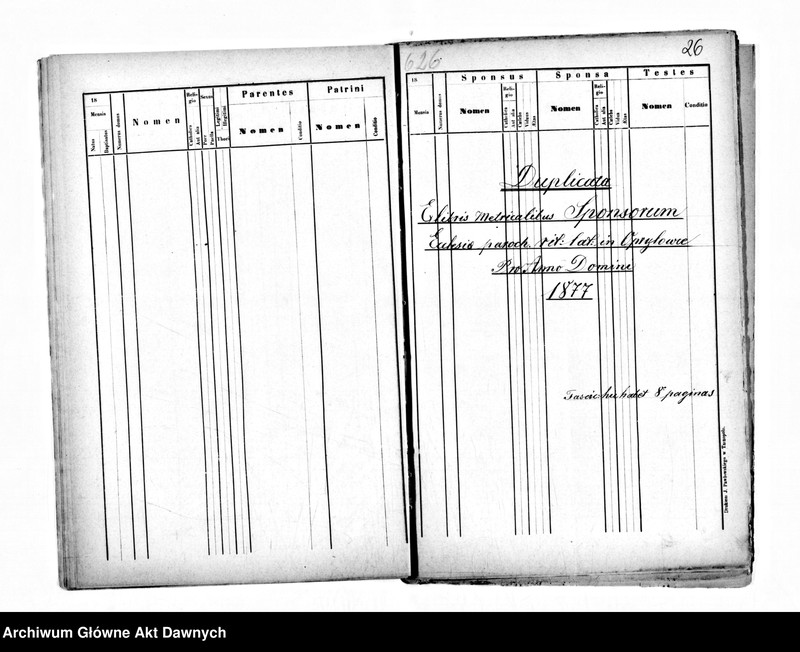 626.
26
18
Mensis
Natus
Baptisatus
Numerus domus
Nomen
Religio
Catholica
Aut alia
Sexus
Puer
Puella
Legitimi
Illegitimi
Thori
Parentes
Nomen
Conditio
Patrini
Nomen
Conditio
18
Mensis
Numerus domus
Sponsus
Nomen
Religio
Catholica
Aut alia
Caelebs
Viduus
Aetas
Sponsa
Nomen
Religio
Catholica
Aut alia
Caelebs
Vidua
Aetas
Testes
Nomen
Conditio
Duplicata
E libris Metricalibus Sponsorum
Eclesie paroch. rit: lat: in Opryłowce
Pro Anno Domini
1877
Fascic. hic habet 8 paginas
Drukiem J. Pawłowskiego w Tarnopolu.
Archiwum Główne Akt Dawnych